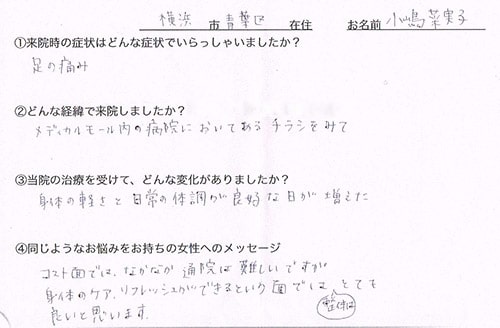 横浜 市 青葉区 在住 お名前 小嶋菜実子
①来院時の症状はどんな症状でいらっしゃいましたか？
足の痛み
②どんな経緯で来院しましたか？
メディカルモール内の病院においてあるチラシをみて
③当院の治療を受けて、どんな変化がありましたか？
身体の軽さと日常の体調が良好な日が増えた
④同じようなお悩みをお持ちの女性へのメッセージ
コスト面では、なかなか通院は難しいですが
身体のケア、リフレッシュができるという面では、とても
整体は
良いと思います。